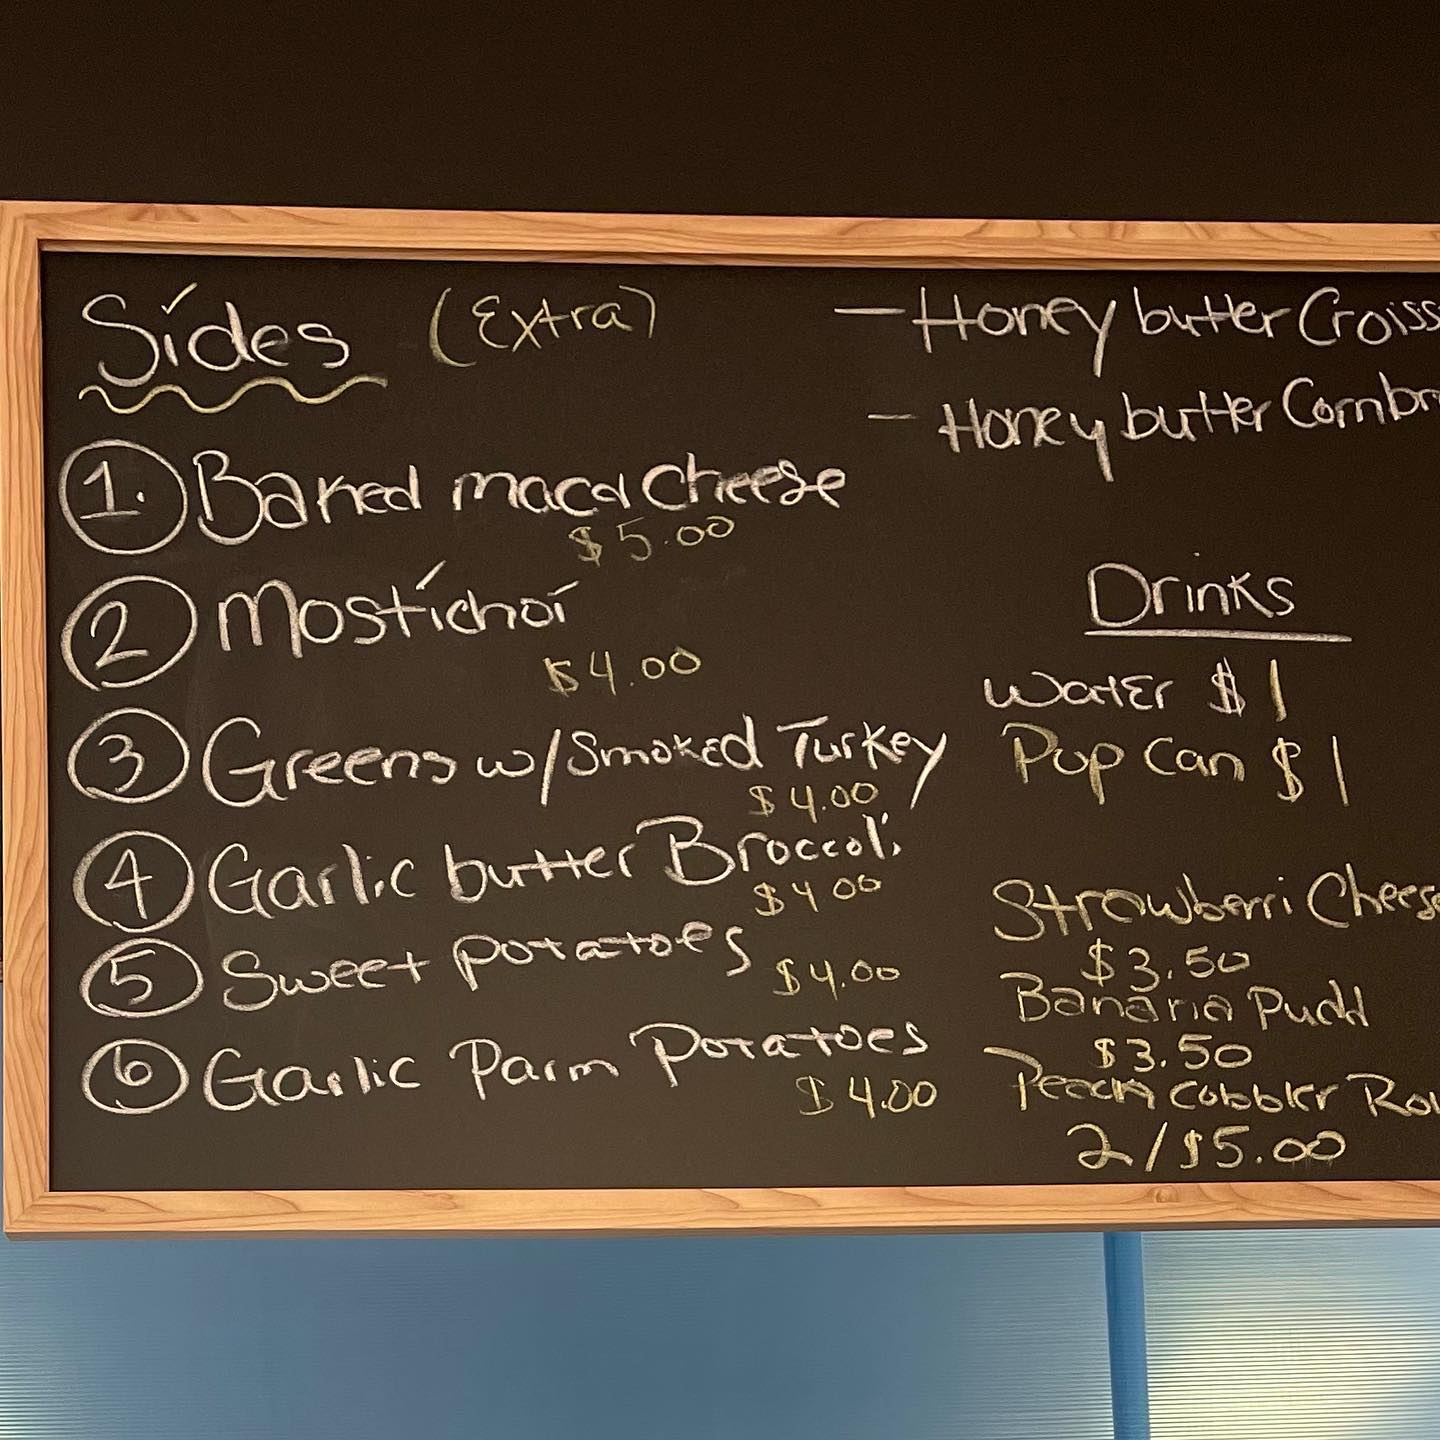 Sides (Extra)
1. Baked mac d Cheese
$5.00
2 Mostichoi
$4.00
3 Greens w/Smoked Turkey
$4.00
4 Garlic butter Broccoli
$4.00
5 Sweet potatoes
$4.00
6 Garlic Parm Potatoes
$4.00
- Honey butter Croiss
- Honey butter Cornbr
Drinks
Water $1
Pop Can $1
Strawberri Cheese
$3.50
Banana Pudd
$3.50
Peach Cobbler Ro
2/$5.00